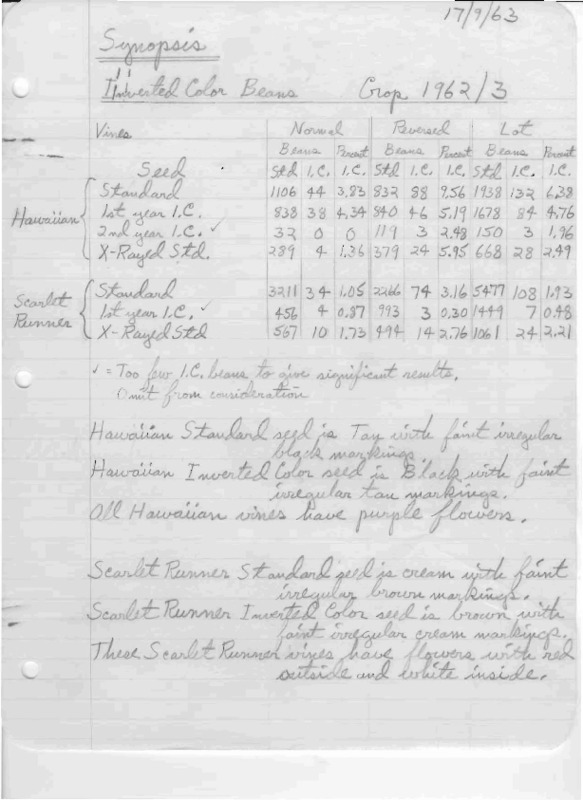 17/9/63
Synopsis
Inverted Color Beans Crop 1962/3
Vines Normal Reversed Lot
Beans Percent Beans Percent Beans Percent
Seed Std I.C. I.C. Std I.C. I.C. Std I.C. I.C.
Hawaiian
Standard 1106 44 3.83 832 88 9.56 1938 132 6.38
1st year I.C. 838 38 4.34 840 46 5.19 1678 84 4.76
2nd year I.C. ✓ 32 0 0 119 3 2.48 150 3 1.96
X-Rayed Std. 289 4 1.36 379 24 5.95 668 28 2.49
Scarlet Runner
Standard 3211 34 1.05 2266 74 3.16 5477 108 1.93
1st year I.C. ✓ 456 4 0.87 993 3 0.30 1449 7 0.48
X-Rayed Std 567 10 1.73 494 14 2.76 1061 24 2.21
✓ = Too few I.C. beans to give significant results.
Omit from consideration
Hawaiian Standard seed is Tan with faint irregular
black markings
Hawaiian Inverted Color seed is Black with faint
irregular tan markings.
All Hawaiian vines have purple flowers.
Scarlet Runner Standard seed is cream with faint
irregular brown markings.
Scarlet Runner Inverted Color seed is brown with
faint irregular cream markings.
These Scarlet Runner vines have flowers with red
outside and white inside.